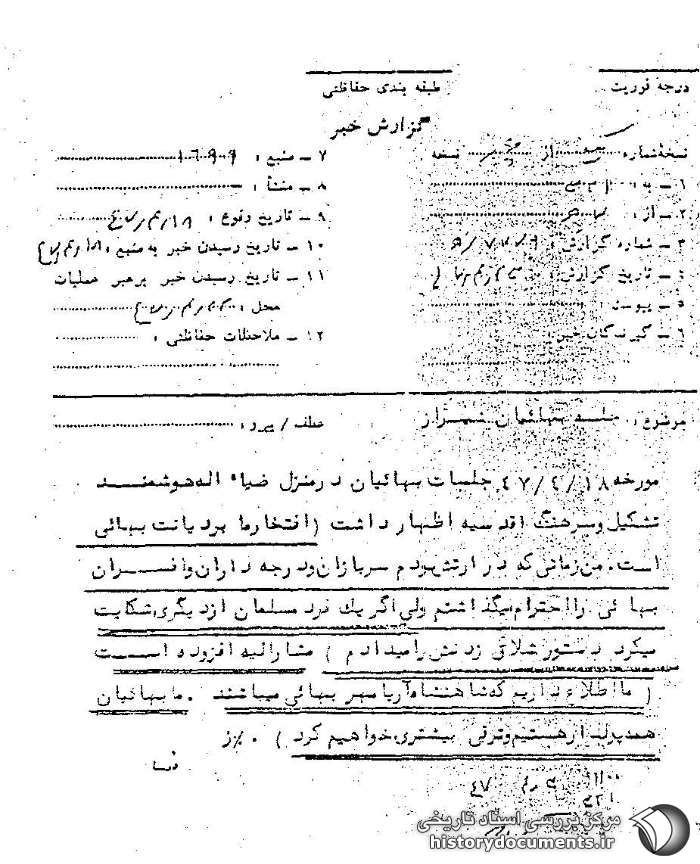 درجه فوریت
طبقه بندی حفاظتی
گزارش خبر
نسخه شماره از نسخه
۱ ـ به :
۲ ـ از :
۳ ـ شماره گزارش :
٤ ـ تاریخ گزارش :
۵ ـ پیوست :
۶ ـ گیرندگان خبر :
۷ ـ منبع : ۱٦۹۹
۸ ـ منشأ :
۹ ـ تاریخ وقوع :
۱۰ ـ تاریخ رسیدن خبر به منبع :
۱۱ ـ تاریخ رسیدن خبر برهبر عملیات
محل :
۱۲ ـ ملاحظات حفاظتی :
موضوع : جلسه بهائیان شیراز
عطف / پیرو :
مورخه ٤۷/٤/۱۸ جلسات بهائیان در منزل ضیاء اله هوشمند
تشکیل و سرهنگ اقدسیه اظهار داشت ( افتخار ما بر دیانت بهائی
است . من زمانی که در ارتش بودم سربازان و درجه داران و افسران
بهائی را احترام میگذاشتم ولی اگر یك فرد مسلمان از دیگری شکایت
میکرد دستور شلاق زدنش را میدادم ) مشارالیه افزوده است
( ما اطلاع داریم که شاهنشاه آریامهر بهائی میباشند . ما بهائیان
همه پولدار هستیم و ترقی بیشتری خواهیم کرد ) . %ز
مرکز بررسی اسناد تاریخی
historydocuments.ir